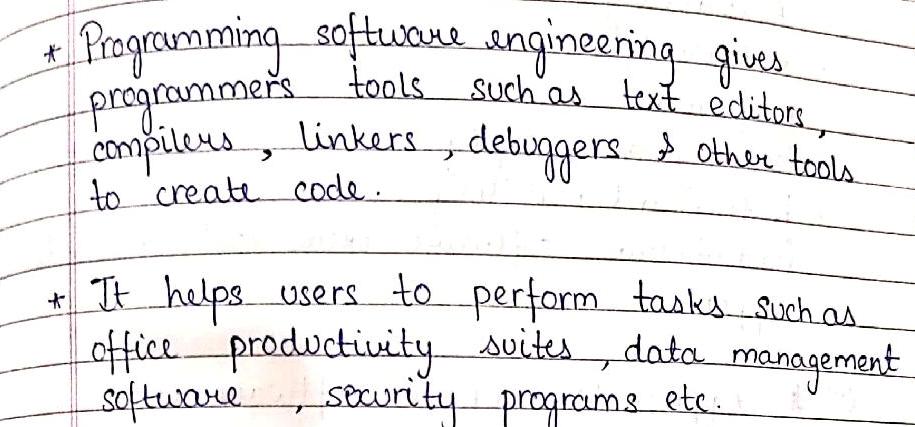 * Programming software engineering gives
programmers tools such as text editors,
compilers, linkers, debuggers & other tools
to create code.
* It helps users to perform tasks such as
office productivity suites, data management
software, security programs etc.